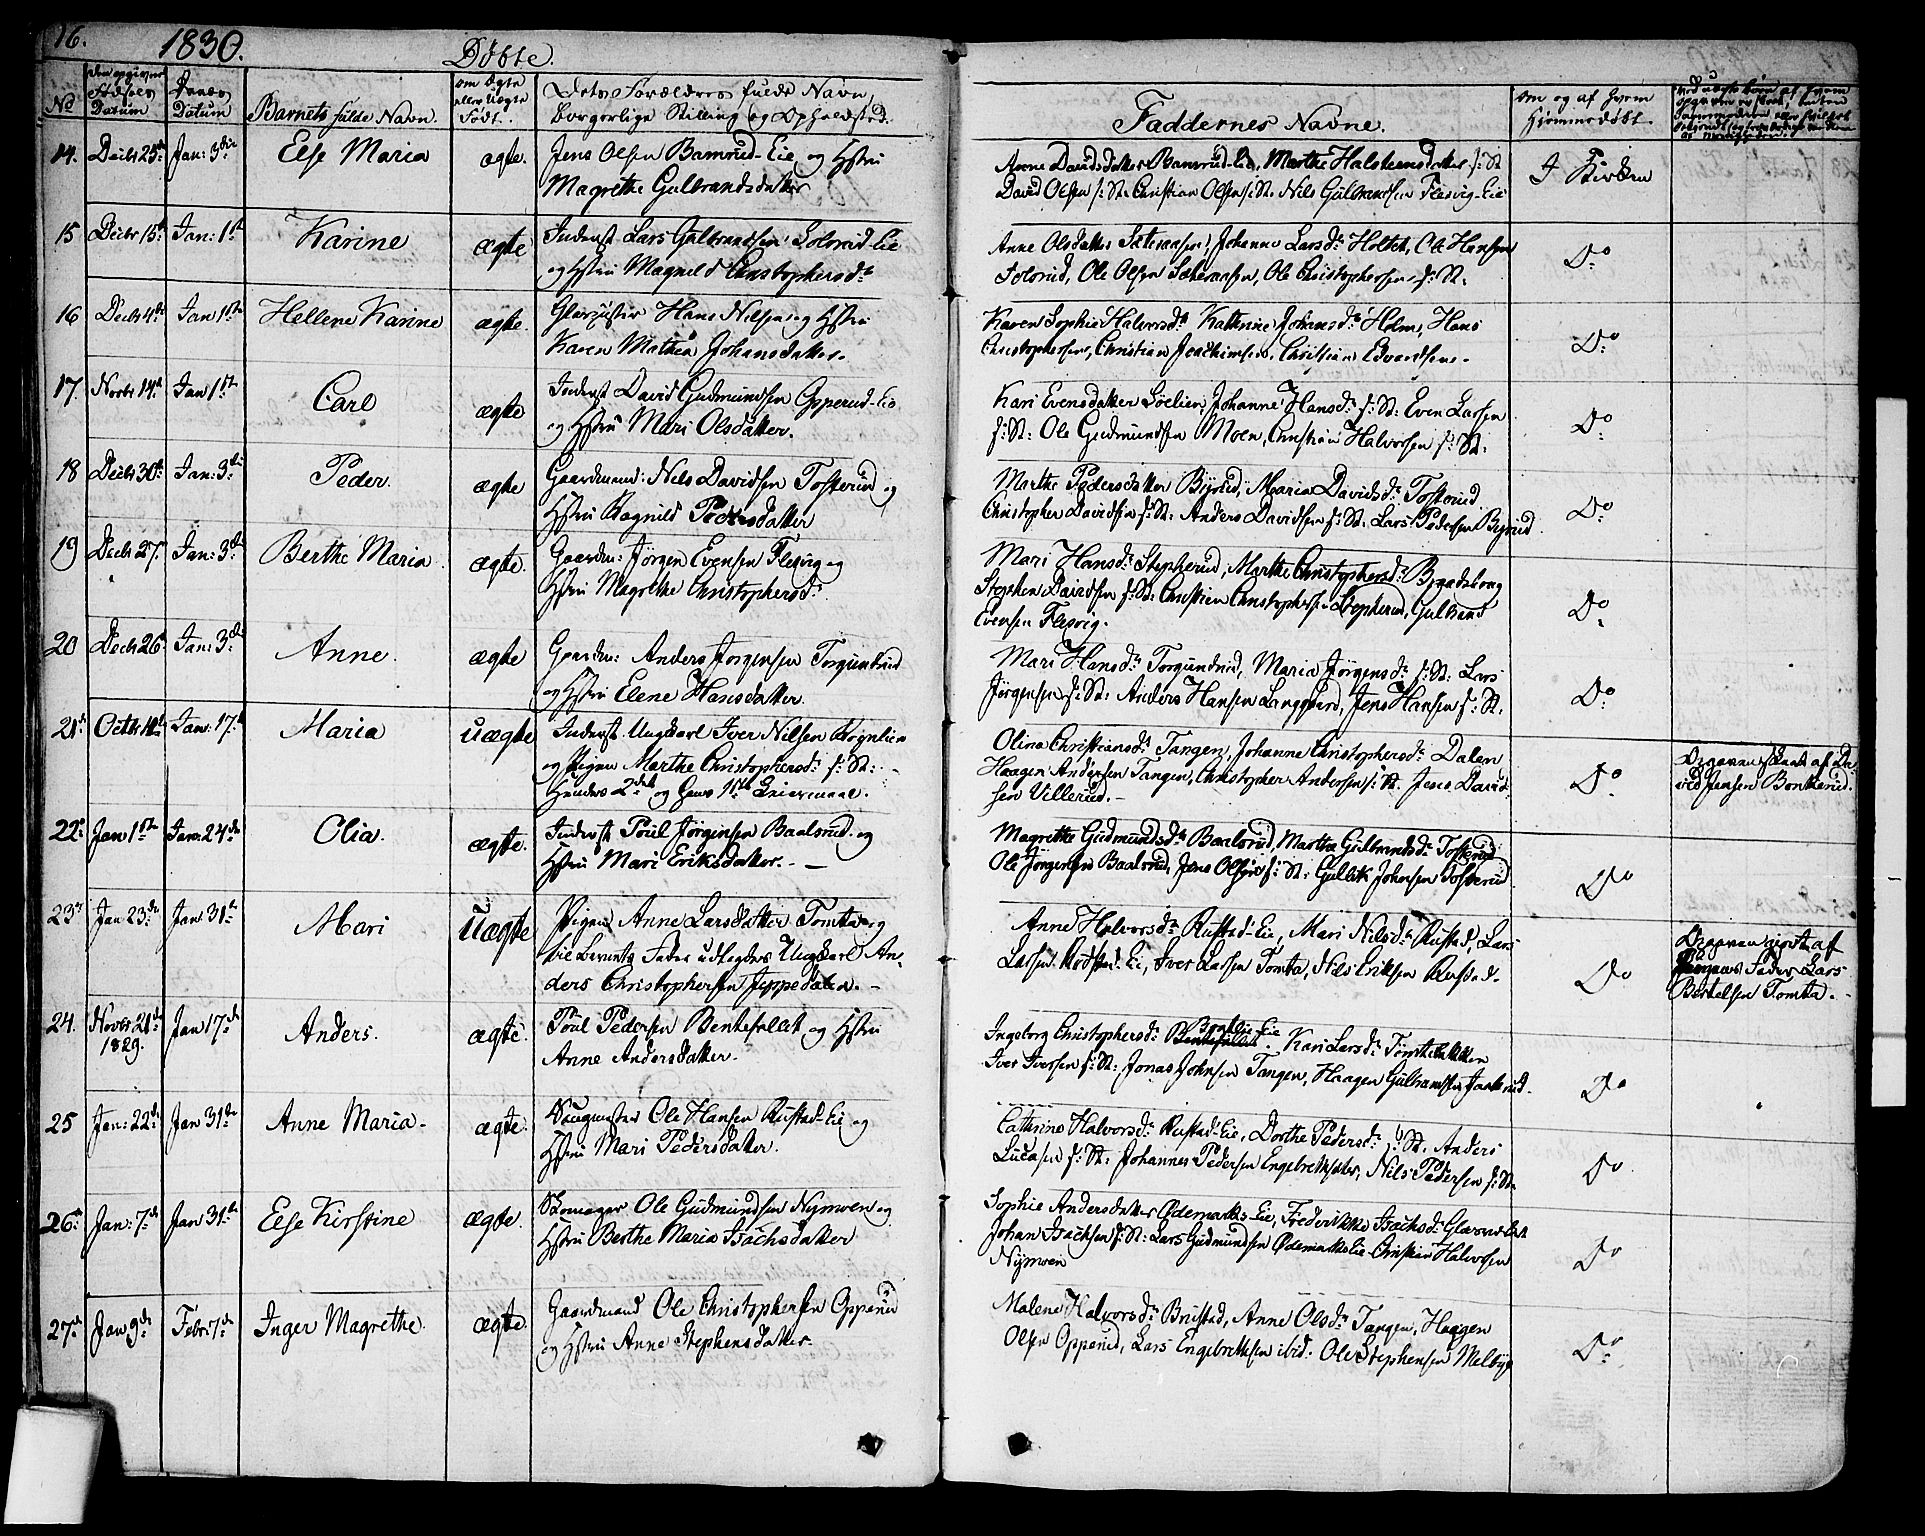 16. 1830. Døbte.
No Den opgivne Fødsels Datum Daabs Datum Barnets fulde Navn. om Ægte eller Uægte Født. Dets Forældres fulde Navn, borgerlige Stilling og Opholdsted. Faddernes Navne. om og af hvem Hjemmedøbt.
14. Decbr 25de Jan: 3die Else Maria ægte. Jens Olsen Bamrud-Eie og Hstru
Magrethe Gulbrandsdatter
Anne Davidsdatter Bamrud-Eie, Marthe Halstensdatter s: St
David Olsen s: St: Christian Olsen s: St: Nils Gulbrandsen Flesvig-Eie
I Kirken
15 Decbr 15de Jan: 1ste Karine ægte Inderst Lars Gulbrandsen Solerud-Eie
og Hstru Magnild Christophersdr
Anne Olsdatter Sæteraasen, Johanne Larsdr Holtet, Ole Hansen
Solerud, Ole Olsen Sæteraasen, Ole Christophersen s: St.
Do
16 Decbr 4de Jan 1ste Hellene Karine ægte. Glarmester Hans Nilsen og Hstru
Karen Mathea Johansdatter.
Karen Sophie Halvorsdr Kathrine Johansdr Holm, Hans
Christophersen, Christian Joachimsen, Christian Edvardsen.
Do
17. Novbr 14de Jan 1ste Carl ægte Inderst David Gudmundsen Opperud-Eie
og Hstru Mari Olsdatter.
Kari Evensdatter Løelien, Johanne Hansdr s: St: Even Larsen
s: St: Ole Gudmundsen Moen, Christian Halvorsen s: St:
Do
18 Decbr 30te Jan: 3die Peder. ægte Gaardmand: Nils Davidsen Tosterud og
Hstru Ragnild Pedersdatter
Marthe Pedersdatter Byrud, Maria Davidsdr Tosterud
Christopher Davidsen s: St: Anders Davidsen s: St: Lars Pedersen Byrud
Do
19 Decbr 27. Jan: 3die Berthe Maria. ægte. Gaardm: Jørgen Evensen Flesvig og
Hstru Magrethe Christophersdr
Mari Hansdr Stepherud, Marthe Christophersdr
Stephen Davidsen s: St: Christian Christophersen Stepherud, Gulbrand
Evensen Flesvig.
Do
20 Decbr 26 Jan: 3die Anne. ægte Gaardm: Anders Jørgensen Torgundrud
og Hstru Elene Hansdatter
Mari Hansdr Torgundrud, Maria Jørgensdr s: St: Lars
Jørgensen s: St: Anders Hansen Langgaard, Jens Hansen s: St.
Do
21de Jan: 17de Maria uægte Inderst Ungkarl Iver Nilsen
og Pigen Marthe Christophersdr s: St:
Hendes 2det og Hans 1ste Leiermaal.
Olina Christiansdr Tangen, Johanne Christophersdr Dalen
Haagen Andersen Tangen, Christopher Andersen s: St. Jens David-
sen Villerud.
Do
Opgaven skeet af Da-
vid Jensen Bonkerud.
22de Jan 1ste Jan: 24de Olia. ægte. Inderst Poul Jørgensen Baalsrud og
Hstru Mari Eriksdatter.
Magrethe Gudmundsdr Baalsrud, Marthe Gulbrandsdr Tosterud
Ole Jørgensen Baalsrud, Jens Olsen s: St: Gullik Johnsen Tosterud
Do
23de Jan 23de Jan 31te Mari Uægte Pigen Anne Larsdatter Tomta og
til Barnets Fader udlægdes Ungkarl An-
ders Christophersen Jeppedalen.
Anne Halvorsdr Rustad-Eie, Mari Nilsdr Rustad, Lars
Larsen Rustad-Ei, Iver Larsen Tomta, Nils Eriksen Rustad.
Do
Opgaven gjort af
Pigens Fader Lars
Bertelsen Tomta.
24. Novbr 21de 1829. Jan 17de Anders. ægte. Poul Pedersen Bentefallet og Hstru
Anne Andersdatter.
Ingeborg Christophersdr Kari Larsdr
Iver Iversen s: St: Jonas Johnsen Tangen, Haagen Gulbrandsen
Do
25 Jan: 22de Jan 31te Anne Maria. ægte. Saugmester Ole Hansen Rustad-Eie og
Hstru Mari Pedersdatter.
Cathrine Halvorsdr Rustad-Eie, Dorthe Pedersdr s: St. Anders
Lucasen s: St: Johannes Pedersen Engebretsæter, Nils Pedersen s: St.
Do
26de Jan: 7de Jan 31te Else Kirstine ægte. Skomager Ole Gudmundsen Nymoen og
Hstru Berthe Maria Isachsdatter
Sophie Andersdatter Ødemarks-Eie, Frederikke Isachsdr
Johan Isachsen s: St: Lars Gudmundsen Ødemarks Eie Christian Halvorsen
Nymoen
Do
27de Jan 9de Febr: 7de Inger Magrethe. ægte. Gaardmand Ole Christophersen Opperud
og Hstru Anne Stephensdatter.
Malene Halvorsdr Brustad, Anne Olsdr Tangen, Haagen
Olsen Opperud, Lars Engebretsen ibid: Ole Stephensen Melbye
Do